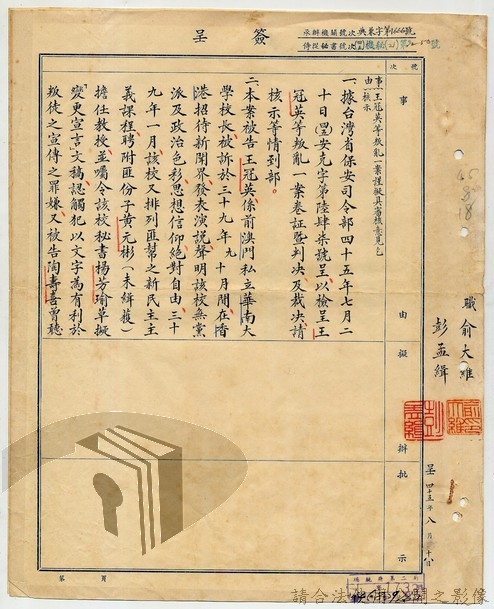 簽呈
承辦機關號次 典東字第1666號
侍從秘書號次
號次
事由
擬辦
批示
事由 一、王冠英等叛亂一案謹擬具審核意見乞核示
職 俞大維
彭孟緝
呈 四十五年八月十八日
一、據台灣省保安司令部四十五年七月二
十日安克字第陸肆柒號呈以檢呈王
冠英等叛亂一案卷証暨判决及裁決請
核示等情到部。
二、本案被告王冠英係前澳門私立華南大
學校長被訴於三十九年九十月間在香
港招待新聞界發表演說聲明該校無黨
派及政治色彩思想信仰絕對自由、三十
九年一月該校又排列匪幫之新民主主
義課程聘附匪份子黃元彬(未緝獲)
擔任教授並囑令該校秘書楊芳瑜草擬
變更宣言文稿、認觸犯以文字為有利於
叛徒之宣傳之罪嫌、又被告陶壽喜曾聽
第頁
請合法使用公開之影像